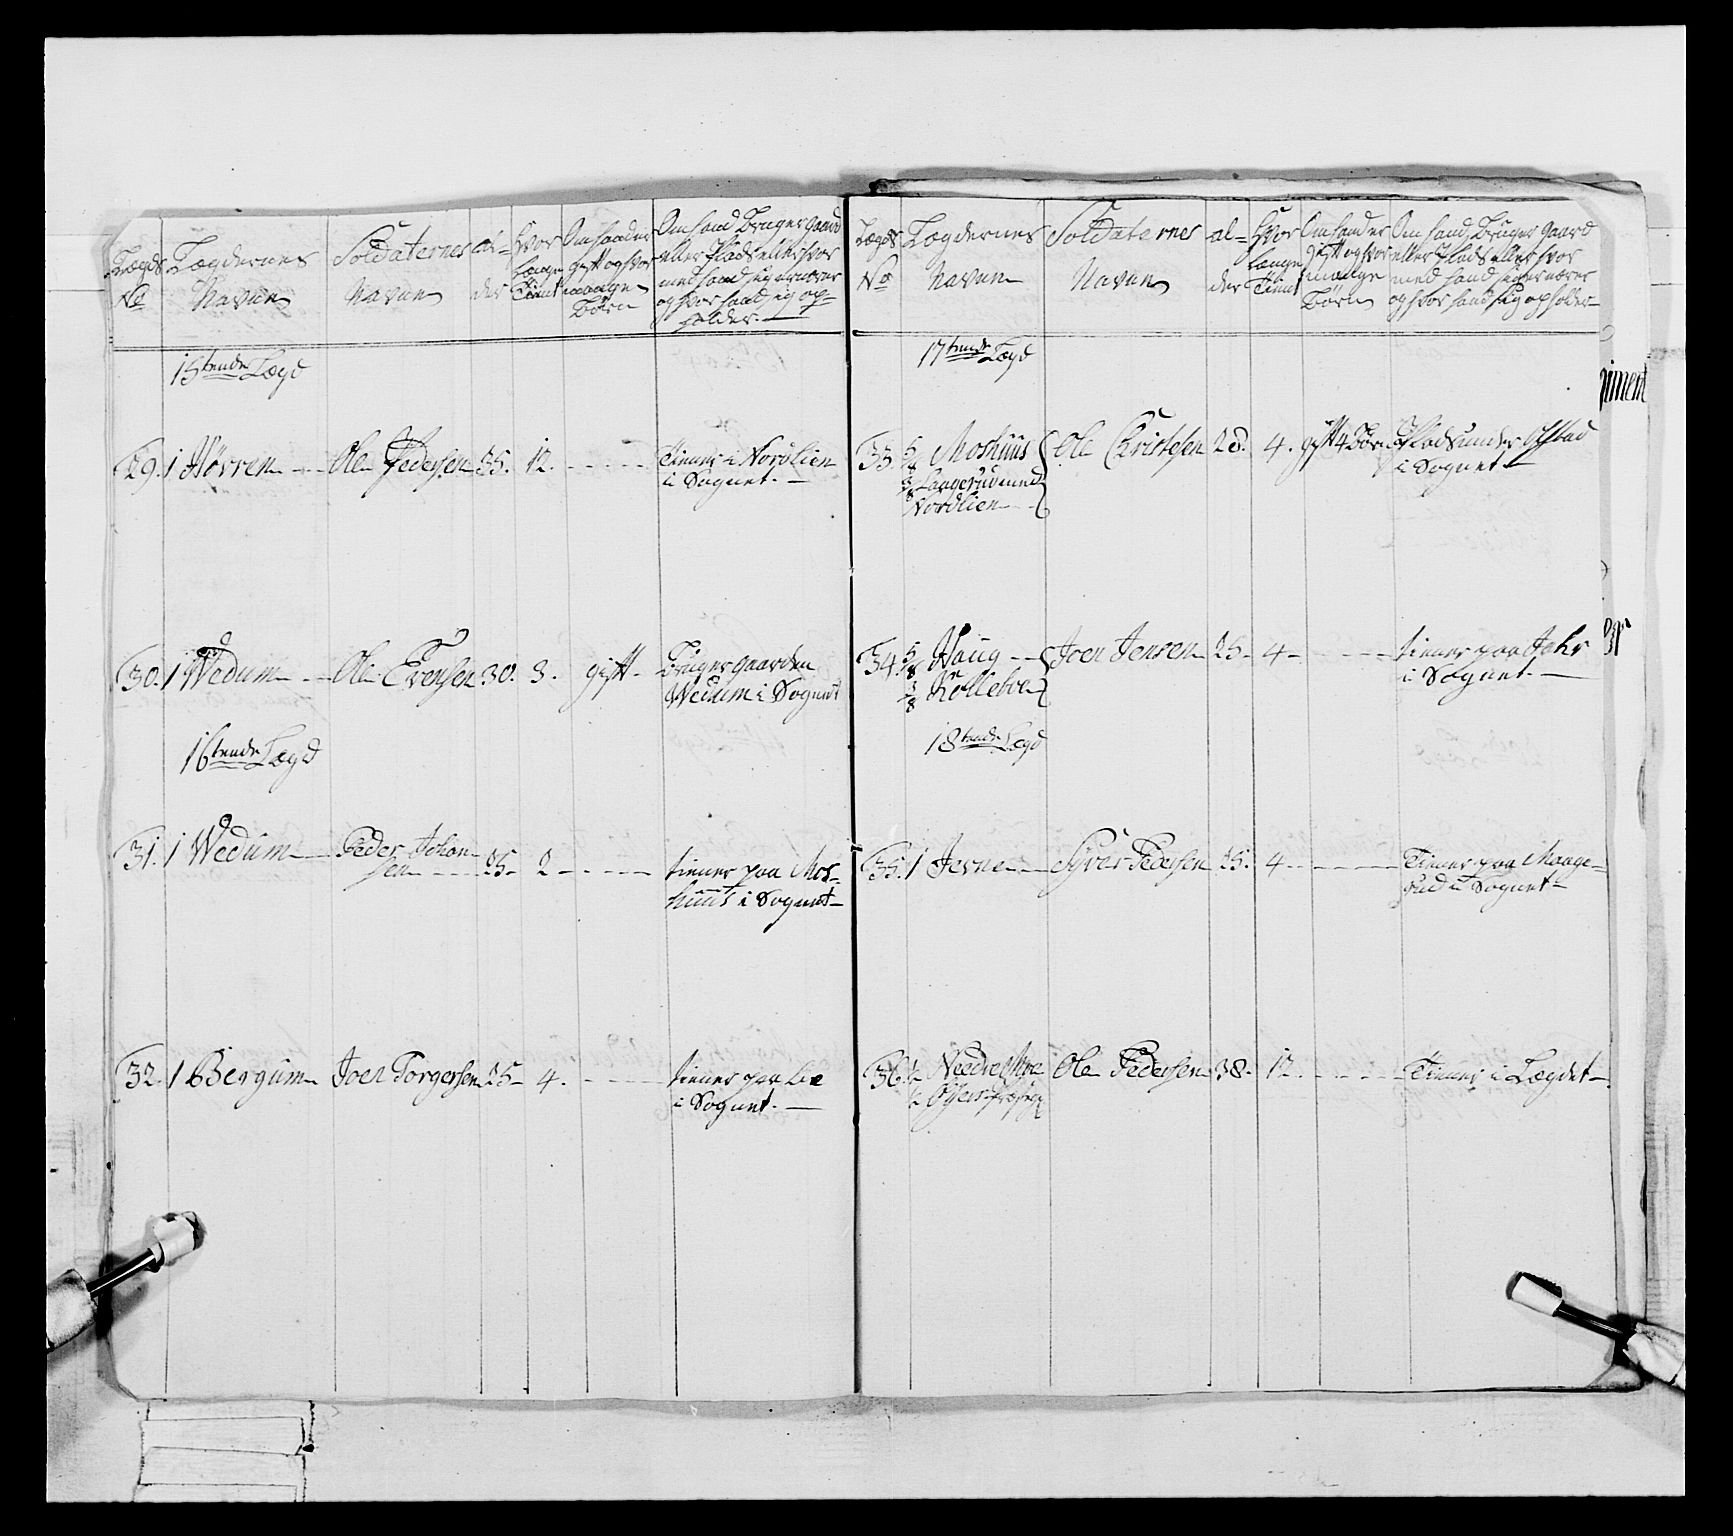 Lægds No | Lægdernes Navne | Soldaternes Navne | al- der | Hvor længe Tient | Om hand er gift og hvor mange Børn | Om hand Bruger gaard eller Plads eller hvor med hand sig ernærer og hvor hand sig op- holder.
15tende Lægd
29. 1 Hörren Ole Pedersen 35. 12. Tiener i Nordlien
i Sognet.
30. 1 Wedum Ole Evensen 30. 3. gift Bruger gaarden
Wedum i Sognet
16tende Lægd
31. 1 Wedum Peder Johan-
sen 25 2 tiener paa Mos-
huus i Sognet
32. 1 Bergum Joen Torgersen 25 4. tiener paa Lie
i Sognet.
Lægds No | Lægdernes Navne | Soldaternes Navne | al- der | Hvor længe Tient | Om hand er gift og hvor mange Børn | Om hand Bruger gaard eller Plads eller hvor med hand sig ernærer og hvor hand sig opholder
17tende Lægd
33. 5/8 Moshuus Ole Christensen 28. 4. gift 4 Børn Plads under
3/8 Langerud med i Sognet
Nordlien
34. 5/8 Haug Joen Jensen 25 4 tiener paa
3/8 Kolleboe i Sognet.
18tende Lægd
35. 1 Jevne Syver Pedersen 25. 4 Tiener paa Mange-
rud i Sognet
36. 1/2 Nedre Moe Ole Pedersen 38. 12. Tiener i Lægdet
1/2 Öyer
giment